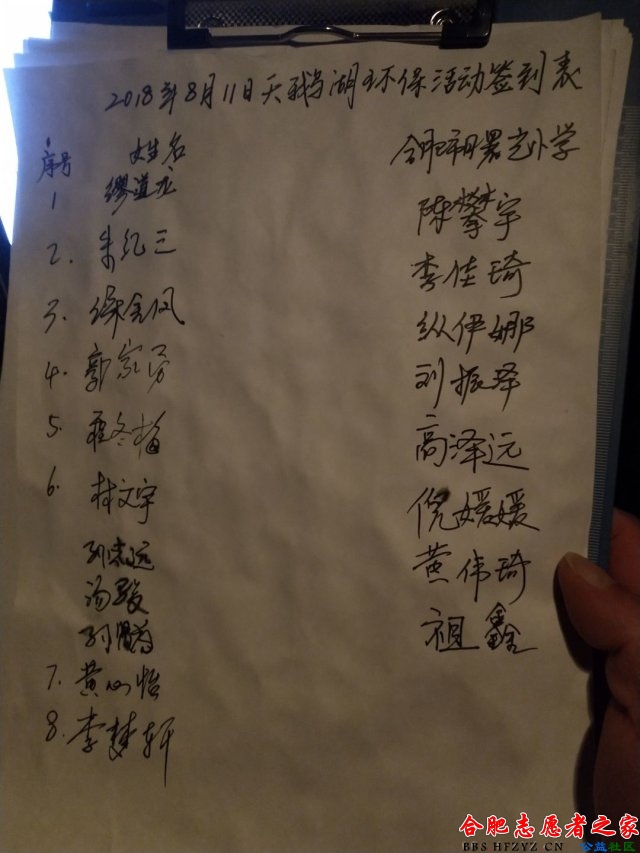 2018年8月11日天鹅湖环保活动签到表
序号 姓名
1 缪道龙
2. 朱纪三
3. 徐金凤
4. 郭家芬
5. 冬梅
6. 林文宇
刘志远
汤骏
7. 黄心怡
8. 李梦轩
合肥市曙光小学
陈攀宇
李佳琦
纵伊娜
刘振泽
高泽远
倪媛媛
黄伟琦
祖鑫
合肥志愿者之家
BBS.HFZYZ.CN 公益社区